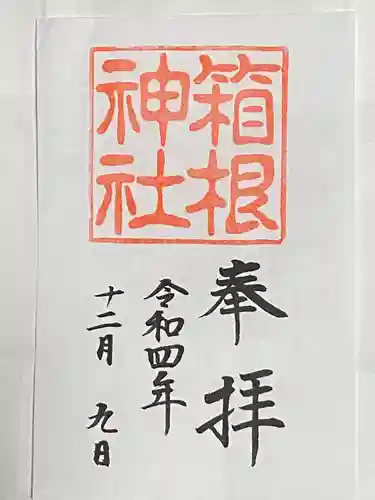 箱根
神社
奉拝
令和四年
十二月 九日